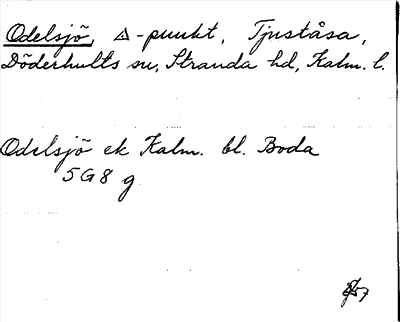 Odelsjö, △-punkt, Tjuståsa,
Döderhults sn, Stranda hd, Kalm. l.
Odelsjö ek Kalm. bl. Boda
5G8 g